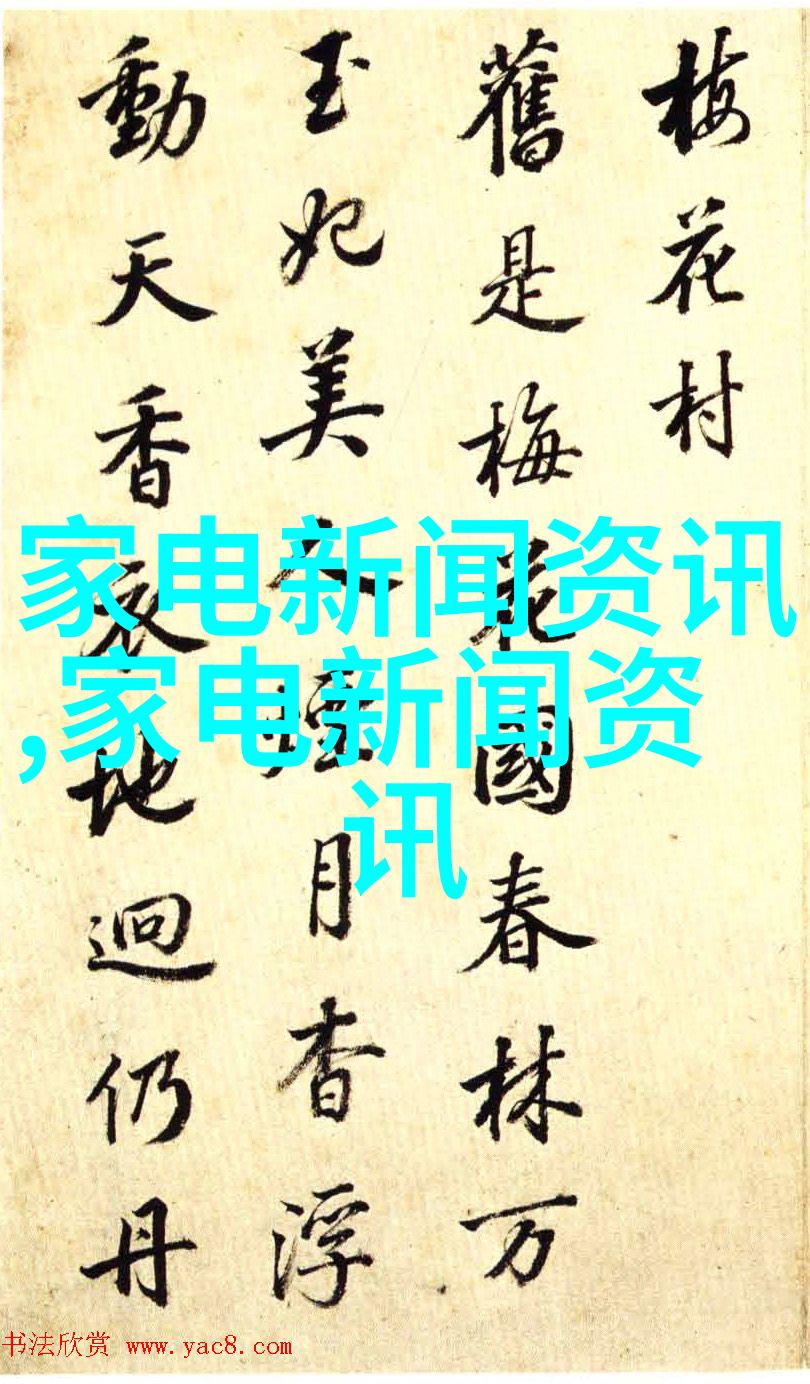 梅花村
舊是梅花國春林万
玉妃美人煙月杳浮
動天香衣地迥仍丹
家电新闻资讯
,家电新闻资
讯
书法欣赏 www.yac8.com